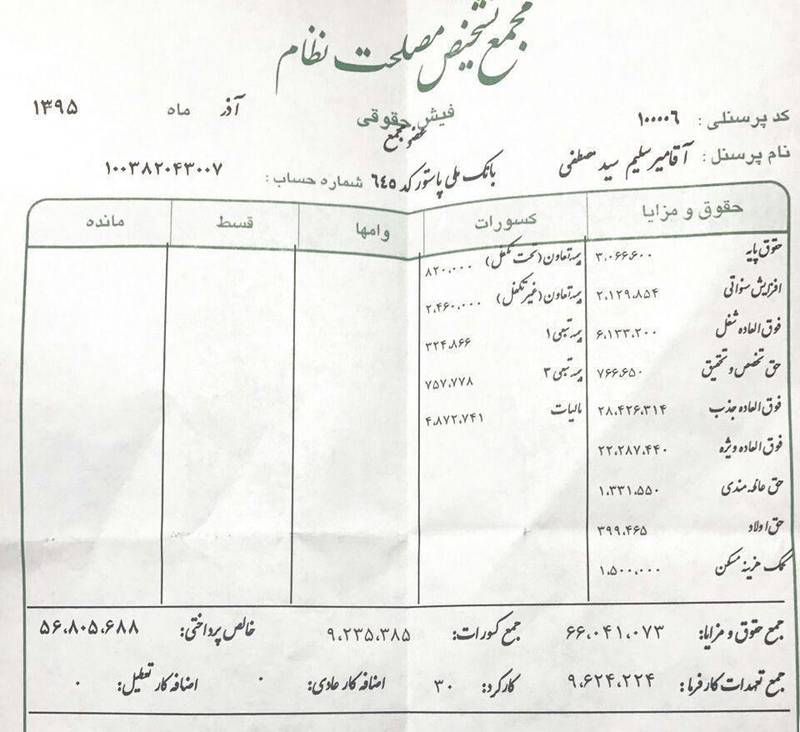 مجمع تشخیص مصلحت نظام
کد پرسنلی: ۱۰۰۰۰۶ فیش حقوقی آذر ماه ۱۳۹۵
عضو مجمع
نام پرسنل: آقا میرسلیم سید مصطفی بانک ملی پاستور کد ۶۴۵ شماره حساب: ۱۰۰۳۸۲۰۴۳۰۰۷
حقوق و مزایا کسورات وامها قسط مانده
حقوق پایه ۳،۰۶۶،۶۰۰ بیمه تعاون (تحت تکفل) ۸۲۰،۰۰۰
افزایش سنواتی ۲،۱۲۹،۸۵۴ بیمه تعاون (غیر تکفل) ۲،۴۶۰،۰۰۰
فوق العاده شغل ۶،۱۳۳،۲۰۰ بیمه تبعی ۱ ۳۲۴،۸۶۶
حق تخصص و تحقیق ۷۶۶،۶۵۰ بیمه تبعی ۳ ۷۵۷،۷۷۸
فوق العاده جذب ۲۸،۴۲۶،۳۱۴ مالیات ۴،۸۷۲،۷۴۱
فوق العاده ویژه ۲۲،۲۸۷،۴۴۰
حق عائله مندی ۱،۳۳۱،۵۵۰
حق اولاد ۳۹۹،۴۶۵
کمک هزینه مسکن ۱،۵۰۰،۰۰۰
جمع حقوق و مزایا: ۶۶،۰۴۱،۰۷۳ جمع کسورات: ۹،۲۳۵،۳۸۵ خالص پرداختی: ۵۶،۸۰۵،۶۸۸
جمع تعهدات کارفرما: ۹،۶۲۴،۲۲۴ کارکرد: ۳۰ اضافه کار عادی: ۰ اضافه کار تعطیل: ۰